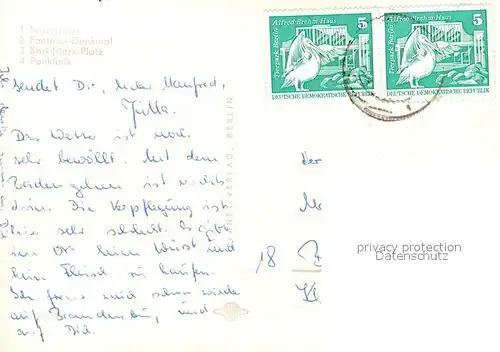 1 Neuruppin
2 Fontane-Denkmal
3 Karl-Marx-Platz
4 Poliklinik
sendet Dir, lieber Manfred,
Jutta.
Das Wetter ist noch
sehr bewölkt. Mit dem
Baden gehen ist nichts
drin. Die Verpflegung ist
hier sehr schlecht. Es gibt
im Ort keine Wurst und
kein Fleisch zu kaufen.
Ich freue mich schon wieder
auf Brandenburg, und
auf Dich.
VERLAG, BERLIN
Alfred-Brehm-Haus
5
Tierpark Berlin
DEUTSCHE DEMOKRATISCHE REPUBLIK
Alfred-Brehm-Haus
5
Tierpark Berlin
DEUTSCHE DEMOKRATISCHE REPUBLIK
18
privacy protection
Datenschutz